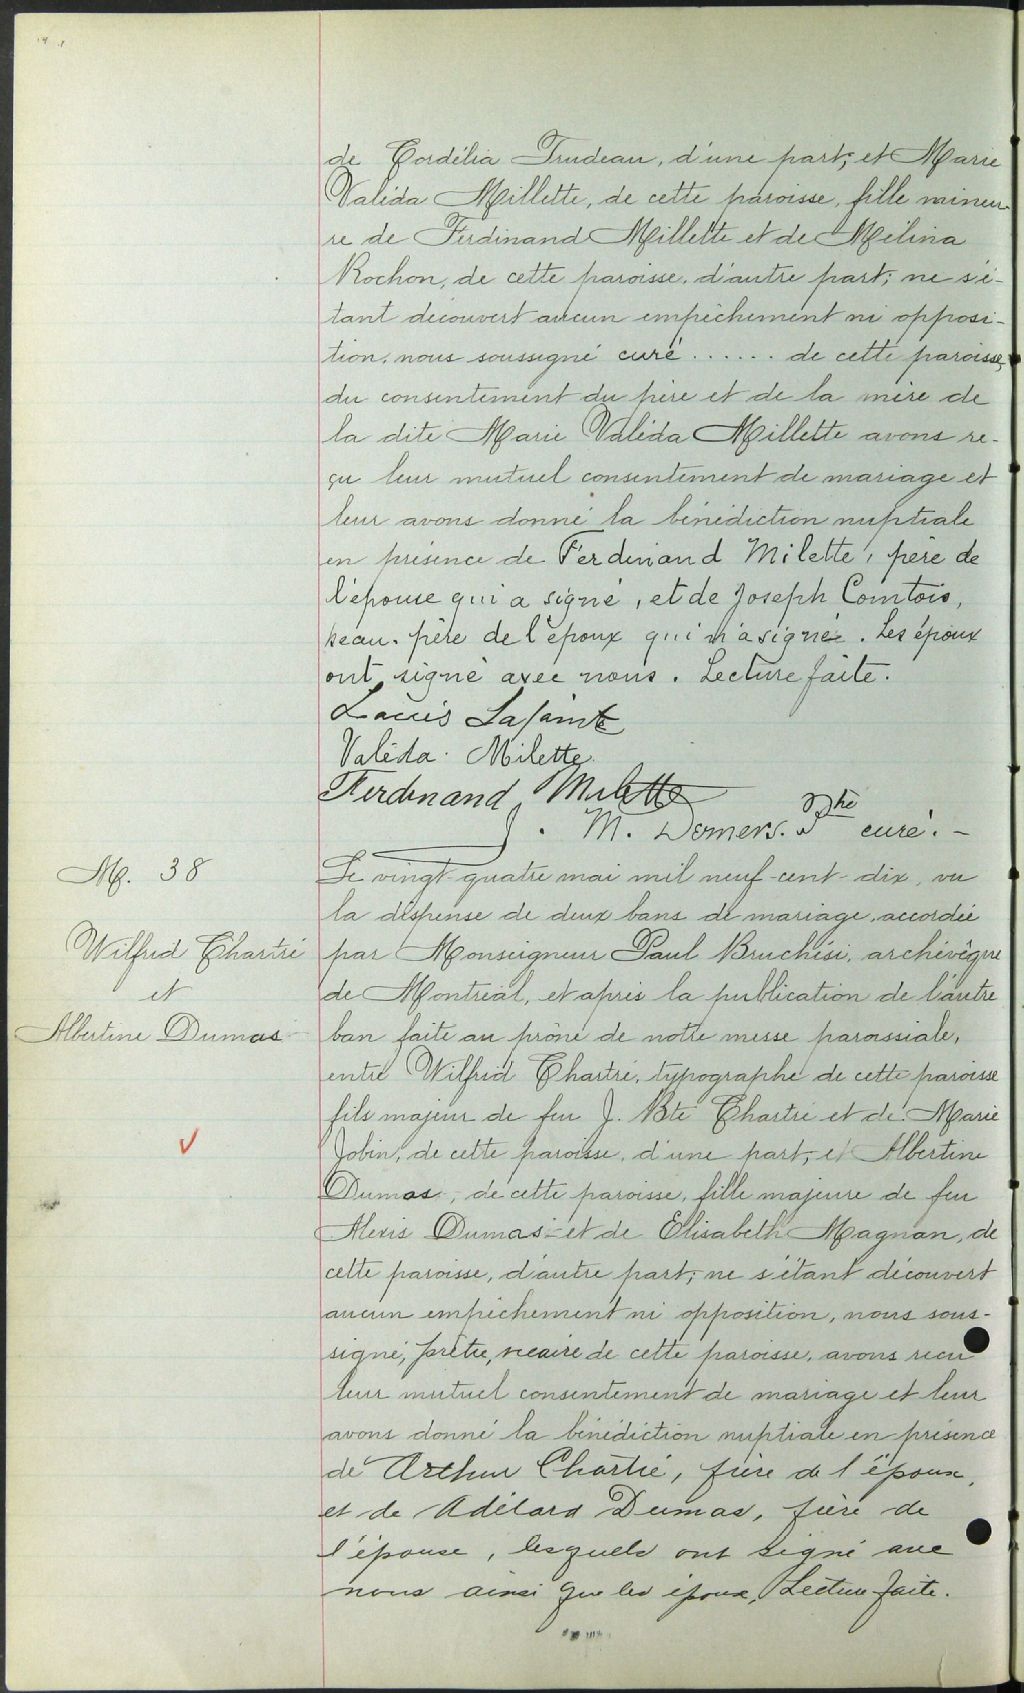 de Cordélia Trudeau, d'une part; et Marie
Valéda Millette, de cette paroisse, fille mineu-
re de Ferdinand Millette et de Mélina
Rochon, de cette paroisse, d'autre part; ne s'é-
tant découvert aucun empêchement ni opposi-
tion, nous soussigné curé ...... de cette paroisse,
du consentement du père et de la mère de
la dite Marie Valéda Millette avons re-
çu leur mutuel consentement de mariage et
leur avons donné la bénédiction nuptiale
en présence de Ferdinand Milette, père de
l'épouse qui a signé, et de Joseph Comtois,
beau-père de l'époux qui n'a signé. Les époux
ont signé avec nous. Lecture faite.
Louis Lajointe
Valéda Milette
Ferdinand Milette
J. M. Demers. Ptre curé. -
M. 38
Wilfrid Chartré
et
Albertine Dumas
Le vingt-quatre mai mil neuf-cent-dix, vu
la dispense de deux bans de mariage, accordée
par Monseigneur Paul Bruchési, archévêque
de Montréal, et après la publication de l'autre
ban faite au prône de notre messe paroissiale,
entre Wilfrid Chartré, typographe de cette paroisse
fils majeur de feu J. Bte Chartré et de Marie
Jobin, de cette paroisse, d'une part, et Albertine
Dumas, de cette paroisse, fille majeure de feu
Alexis Dumas et de Elisabeth Magnan, de
cette paroisse, d'autre part; ne s'étant découvert
aucun empêchement ni opposition, nous sous-
signé, prêtre, vicaire de cette paroisse, avons reçu
leur mutuel consentement de mariage et leur
avons donné la bénédiction nuptiale en présence
de Arthur Chartré, frère de l'époux,
et de Adélard Dumas, frère de
l'épouse, lesquels ont signé avec
nous ainsi que les époux, Lecture faite.